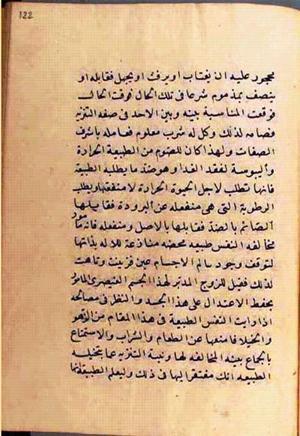 122
محجور عليه ان يغتاب او يرفث او يجهل فقابله او
يتصف بمذموم شرعا فى تلك الحال فوقت الحال
فوقعت المناسبة بينه وبين الاحد فى صفة التنزيه
فصامه لذلك وكل له شرب معلوم فعامله باشرف
الصفات ولهذا كان للصوم من الطبيعة الحرارة
واليبوسة لفقد الغذا وهو ضد ما يطلبه الطبيعة
فانها تطلب لاجل الحيوة الحرارة لا منفعلها ويطلب
الرطوبة التى هى منفعله عن البرودة فقابلها
الصائم بالضد فقابلها بالاصل ومنفعله فانه مأمور
بمخالفه النفس والنفس طبيعه محضه منازعة للاله بذاتها
لتوقف وجود عالم الاجسام عين فزينت وتاهت
لذلك فقيل للروح المدبر لهذا الجسم العنصرى المأمور
بحفظ الاعتدال على هذا الجسد والنظر فى مصالحه
اذا رايت النفس الطبيعية فى هذا المقام من الزهو
والخيلا فامنعها عن الطعام والشراب والاستمتاع
بالجماع بنية المخالفه لها ونية التنزيه عما يتخيله
الطبيعه انك مفتقر اليها فى ذلك وليعلم الطبيعة انها